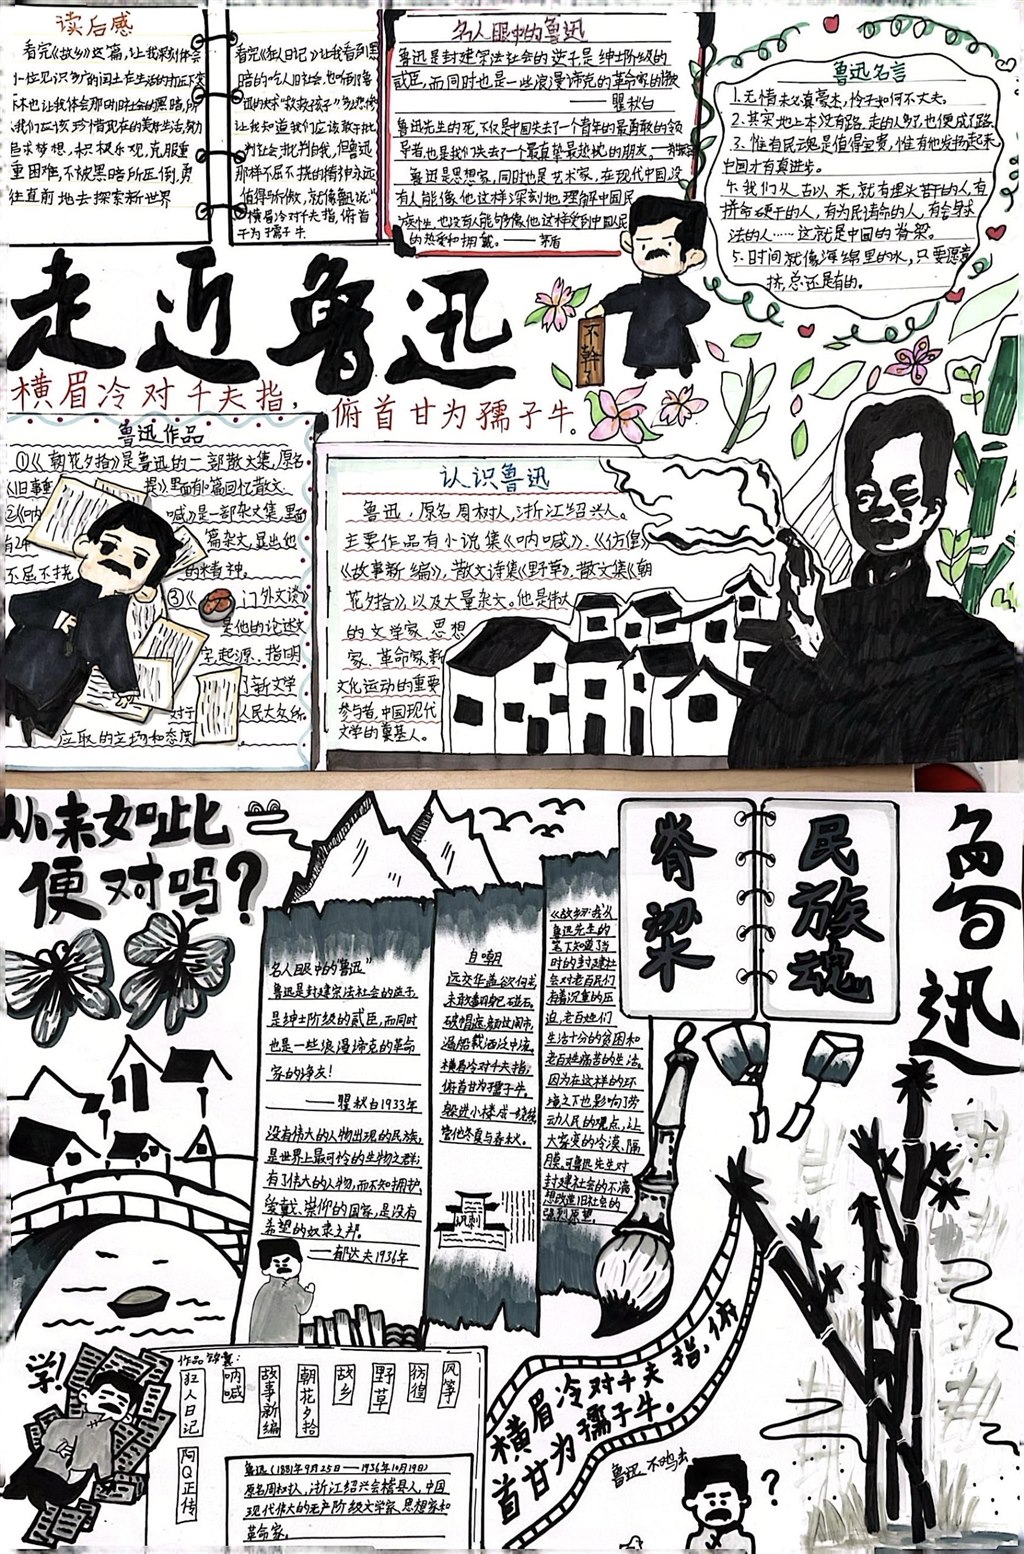 读后感
看完《故乡》这篇,让我深刻体会
们应该珍惜现在的美好生活,努力
追求梦想,积极乐观,克服重
重困难,不被黑暗所压倒,勇
往直前地去探索新世界
看完《狂人日记》让我看到黑
暗的吃人旧社会,也听到鲁
让我知道我们应该敢于批
判社会,批判自我,但鲁迅
那样不屈不挠的精神永远
值得所敬,就像鲁迅说"
横眉冷对千夫指,俯首
干为孺子牛.
名人眼中的鲁迅
鲁迅是封建宗法社会的逆子,是绅士阶级的
贰臣,而同时也是一些浪漫谛克的革命家的诤友
——瞿秋白
鲁迅先生的死,不仅是中国失去了一个青年的最勇敢的领
导者,也是我们失去了一个最真挚最热忱的朋友。
鲁迅是思想家,同时也是艺术家,在现代中国没
有人能像他这样深刻地理解中国民
族性,也没有人能够像他这样受到中国人民
的热爱和拥戴。——茅盾
鲁迅名言
1.无情未必真豪杰,怜子如何不丈夫。
2.其实地上本没有路,走的人多了,也便成了路
3.惟有民魂是值得宝贵,惟有他发扬起来
中国才有真进步。
4.我们从古以来,就有埋头苦干的人,有
拼命硬干的人,有为民请命的人,有舍身求
法的人……这就是中国的脊梁。
5.时间就像海绵里的水,只要愿意
挤,总还是有的。
走近鲁迅
不干
横眉冷对千夫指,俯首甘为孺子牛。
鲁迅作品
①《朝花夕拾》是鲁迅的一部散文集,原名
《旧事重提》.里面有10篇回忆散文.
②《呐喊》是一部杂文集,里面
篇杂文,显出他
不屈不挠的精神。
③《门外文谈》
是他的论述文
字起源、指明
了新文学
对于人民大众所
应取的立场和态度
认识鲁迅
鲁迅,原名周树人,浙江绍兴人。
主要作品有小说集《呐喊》、《彷徨》
《故事新编》,散文诗集《野草》,散文集《朝
花夕拾》,以及大量杂文。他是伟大
的文学家 思想
家、革命家,新
文化运动的重要
参与者,中国现代
文学的奠基人。
从来如此
便对吗?
脊梁
民族魂
鲁迅
名人眼中的"鲁迅"
鲁迅是封建宗法社会的逆子,
是绅士阶级的贰臣,而同时
也是一些浪漫谛克的革命
家的诤友!
——瞿秋白1933年
没有伟大的人物出现的民族,
是世界上最可怜的生物之群;
有了伟大的人物,而不知拥护,
爱戴、崇仰的国家,是没有
希望的奴隶之邦。
——郁达夫1936年
自嘲
运交华盖欲何求,
未敢翻身已碰头。
破帽遮颜过闹市,
漏船载酒泛中流。
横眉冷对千夫指,
俯首甘为孺子牛。
躲进小楼成一统,
管他冬夏与春秋。
鲁迅先生的
笔下知道了当
时的封建社
会对老百民们
有着沉重的压
迫,老百姓们
生活十分的贫困和
老百姓痛苦的生活。
因为在这样的环
境之下也影响了劳
动人民的观点,让
大家变的冷漠、隔
膜。可鲁迅先生对
封建社会的不满
想改造旧社会的
强烈愿望。
横眉冷对千夫指,俯
首甘为孺子牛。
学!
作品
狂人日记
呐喊
故事新编
朝花夕拾
故乡
野草
彷徨
风筝
阿Q正传
鲁迅(1881年9月25日—1936年10月19日)
原名周树人,浙江绍兴会稽县人,中国
现代伟大的无产阶级文学家、思想家和
革命家。
鲁迅,不鸣去
?